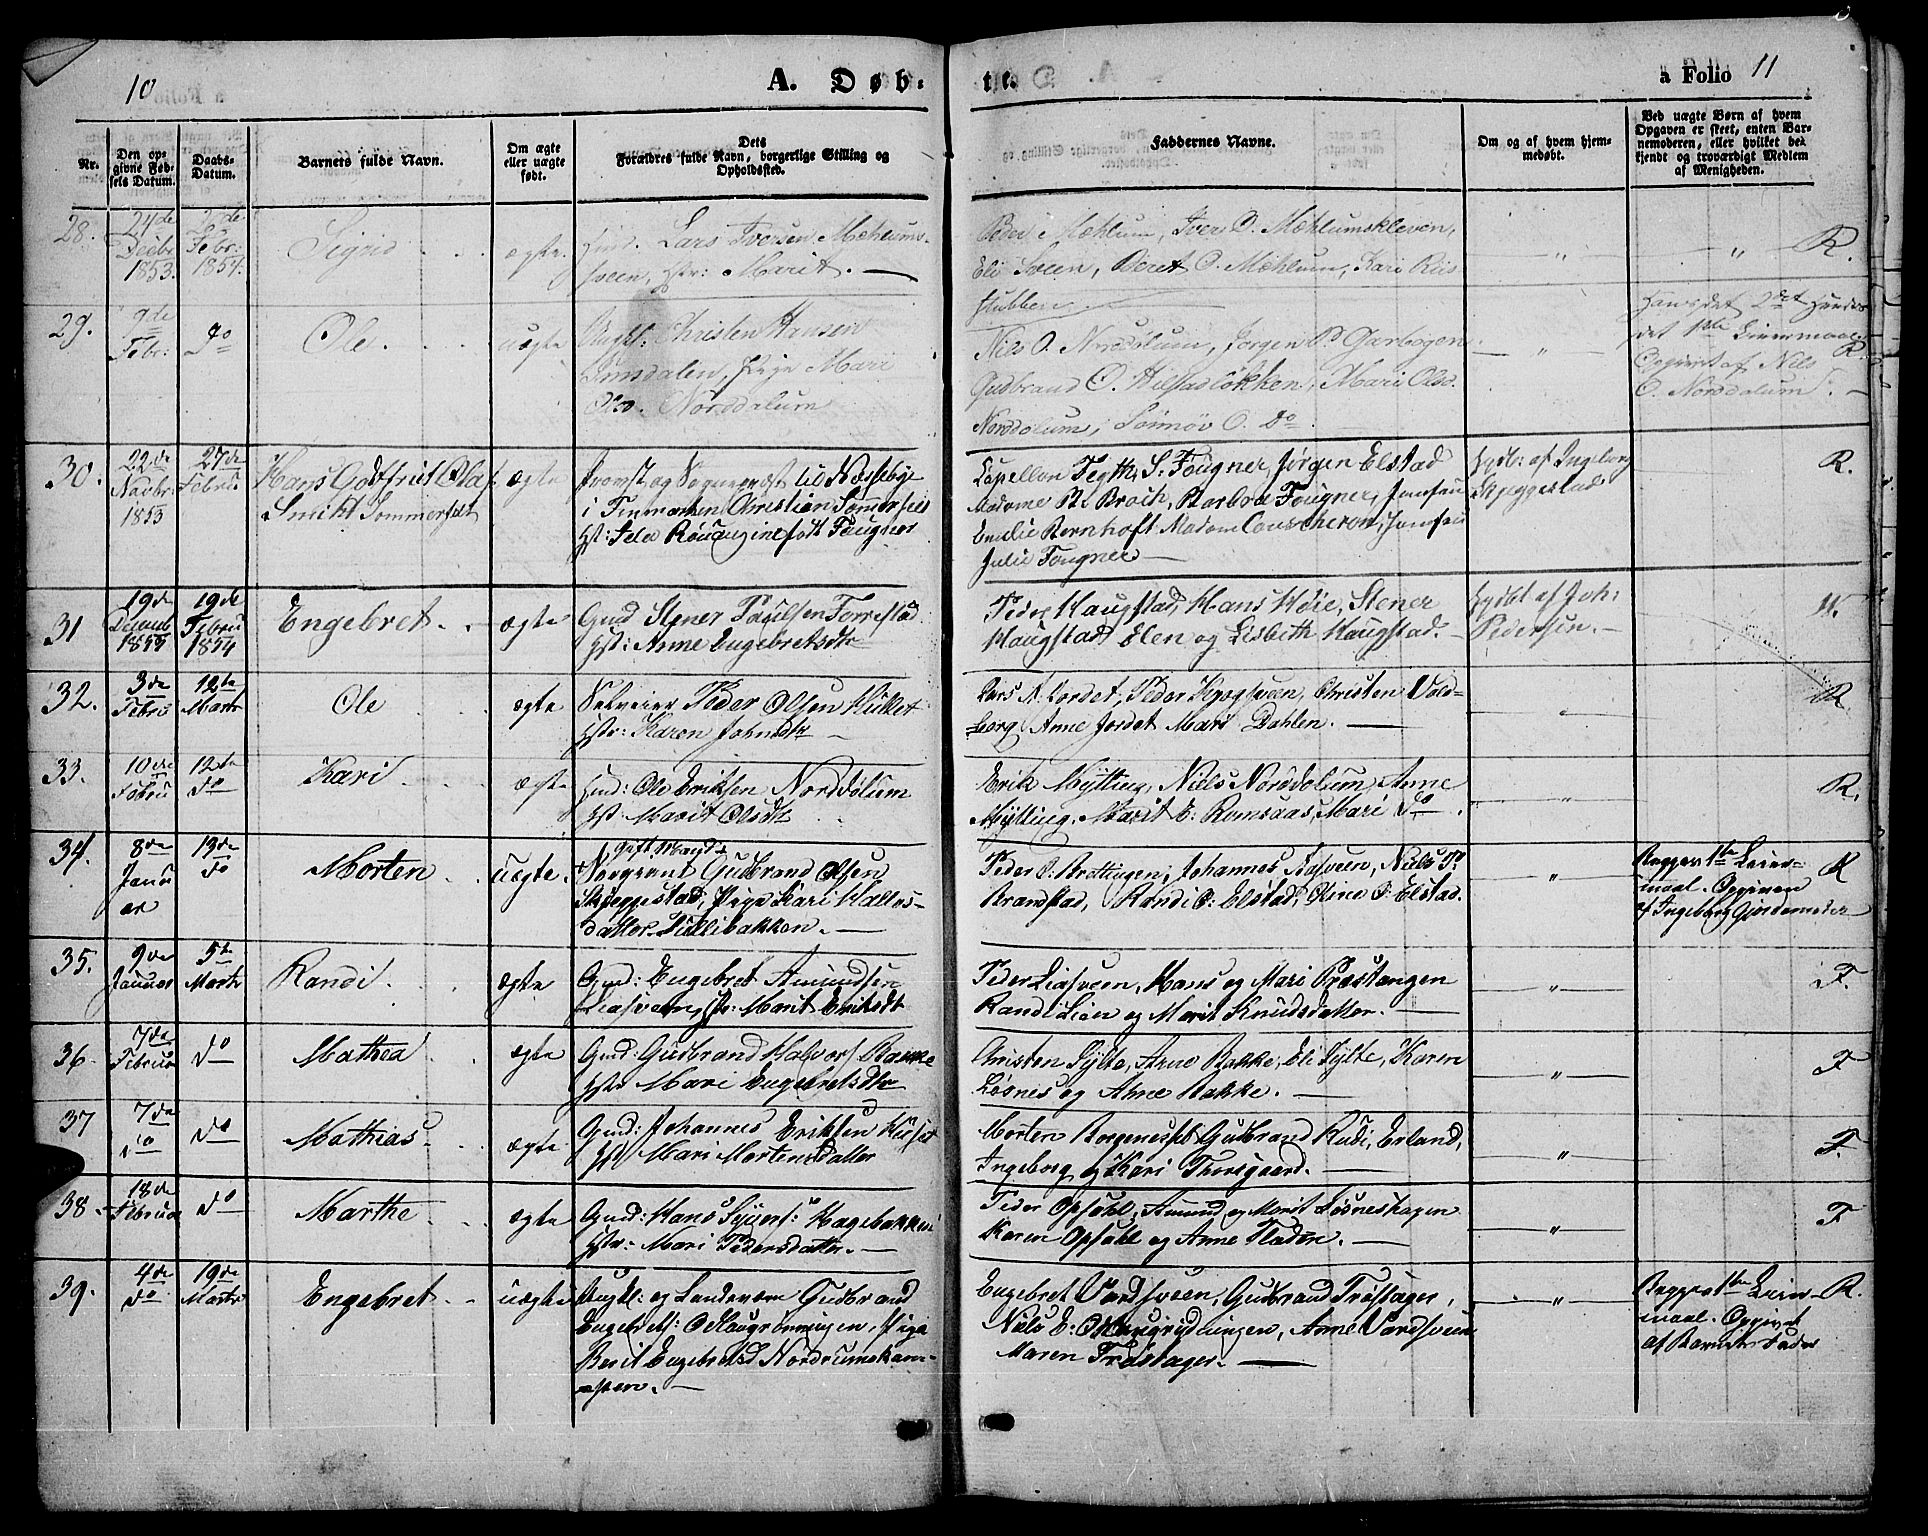 10
A. Døb-
te.
a Folio 11
Nr.
Den op-
givne Fød-
sels Datum.
Daabs-
Datum.
Barnets fulde Navn.
Om ægte
eller uægte
født.
Dets
Forældres fulde Navn, borgerlige Stilling og
Opholdssted.
Faddernes Navne.
Om og af hvem hjem-
medøbt.
Ved uægte Børn af hvem
Opgaven er skeet, enten Bar-
nemoderen, eller hvilket be-
kjendt og troværdigt Medlem
af Menigheden.
28.
24de
Decbr
1853.
Febr:
1854.
Sigrid
ægte
Lars Iversen Mæhlums-
sveen, Hstr: Marit. —
Peder Mæhlum, Iver O. Mæhlumskleven,
Eli Sveen, Beret O. Mæhlum, Kari Riis-
stubben
"
"
R.
29.
9de
Febr:
do
Ole.
uægte
Ungk: Christen Hansen
Imsdalen, Pige Mari
Olsd. Norddolum
Nils O. Norddolum, Jørgen P Garbogen
Gudbrand O. Hilsasløkken, Mari Olsd.
Norddolum, Sønnøv O. do
"
Hans det 2det Hendes
det 1ste Leiermaal
Opgivet af Nils
O. Norddolum. —
R
30.
22de
Novbr
1853
27de
Febru
Hans Godtfried Olaf
Smith Sommerfelt
ægte
Provst og Sogneprest til Næsseby
i Finmarken Christian Sommerfelt
Hst: født Fougner
Capellan Fegth, S. Fougner, Jørgen Elstad
Madame Broch, Barbra Fougner, Jomfru
Emilie Bernhoft Madam Coucheron, Jomfru
Julie Fougner —
Hjdb: af Ingeborg
Skjeggestad
R.
31
19de
Decemb
1853
19de
Febru
1854
Engebret
ægte
Gmd Stener Paulsen Forrestad
Hst: Anne Engebretsdtr
Peder Haugstad, Hans Høie, Stener
Haugstad Elen og Lisbeth Haugstad. —
Hjdbt af Joh:
Pedersen. —
32.
3de
Febru
12te
Marts
Ole
ægte
Selveier Peder Olsen
Hstr: Karen Johnsdtr —
Lars N. Jordet, Peder Skogsveen, Christen Vold-
berg Anne Jordet Mari Dahlen. —
"
R.
33.
10de
Febru
12te
do
Kari
ægte
Hmd: Ole Eriksen Norddolum
Hst: Marit Olsdtr
Erik Mytting, Niels Norddolum, Anne
Mytting, Marit E: Romsaas, Mari do.
"
R.
34.
8de
Janu
ar
13de
do
Morten
uægte
Gift Mand
Sergeant Gudbrand Olsen
Skjeggestad, Pige Kari
datter Lillebakken. —
Peder O: Brottingen, Johannes Aasveen, Niels P.
Brandstad, Randi O: Elstad, Oline O: Elstad.
"
Begges 1ste Leier-
maal. Opgiven
af Ingeborg Gjordemoder
R
35.
9de
Januar
5te
Marts
Randi
ægte
Gmd: Engebret Amundsen
Liasveen Hstr: Marit Eriksdtr
Peder Liasveen, Hans og Mari Præstangen
Randi Lien og Marit Knudsdatter. —
"
F.
36.
7de
Februa
do
Mathea
ægte
Gmd: Gudbrand Halvors: Bakke
Hstr Mari Engebretsdtr
Christen Sylte, Arne Bakke, Eli Sylte, Karen
Løsnes og Anne Bakke. —
"
F
37
7de
do
do
Mathias
ægte
Gmd: Johannes Eriksen
Hst Mari Mortensdatter
Morten Borgenes Gudbrand Rudi, Erland,
Ingeborg og Kari Thorsgaard. —
"
F.
38
18de
Februa
do
Marthe
ægte
Gmd: Hans Syvers: Hagebakken
Hstr: Mari Pedersdatter. —
Peder Opsahl, Amund og Marit Løsneshagen
Karen Opsahl og Anne Fladen. —
"
F
39.
4de
do
19de
Marts
Engebret
uægte
Ungkl: og Landeværn Gudbrand
Engebrets: Pige
Berit Engebretsd Nordrumskam-
pen. —
Engebret Vordsveen, Gudbrand Frøstager,
Niels E: Anne Vordsveen
Maren Frøstager. —
"
Begges 1ste Leier-
maal. Opgivet
af Barnets Fader
R.